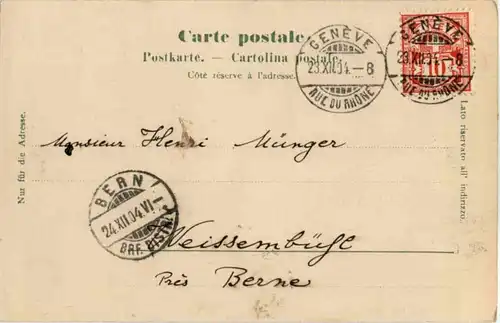 Carte postale
Postkarte. — Cartolina postale.
Côté réservé à l'adresse.
GENÈVE
23.XII.04.–8
RUE DU RHÔNE
GENÈVE
23.XII.04.–8
RUE DU RHÔNE
10
Nur für die Adresse.
Lato riservato all' indirizzo.
Monsieur Henri Münger
BERN
24.XII.04.VI–
BRF. DISTR.
Weissembühl
Près Berne